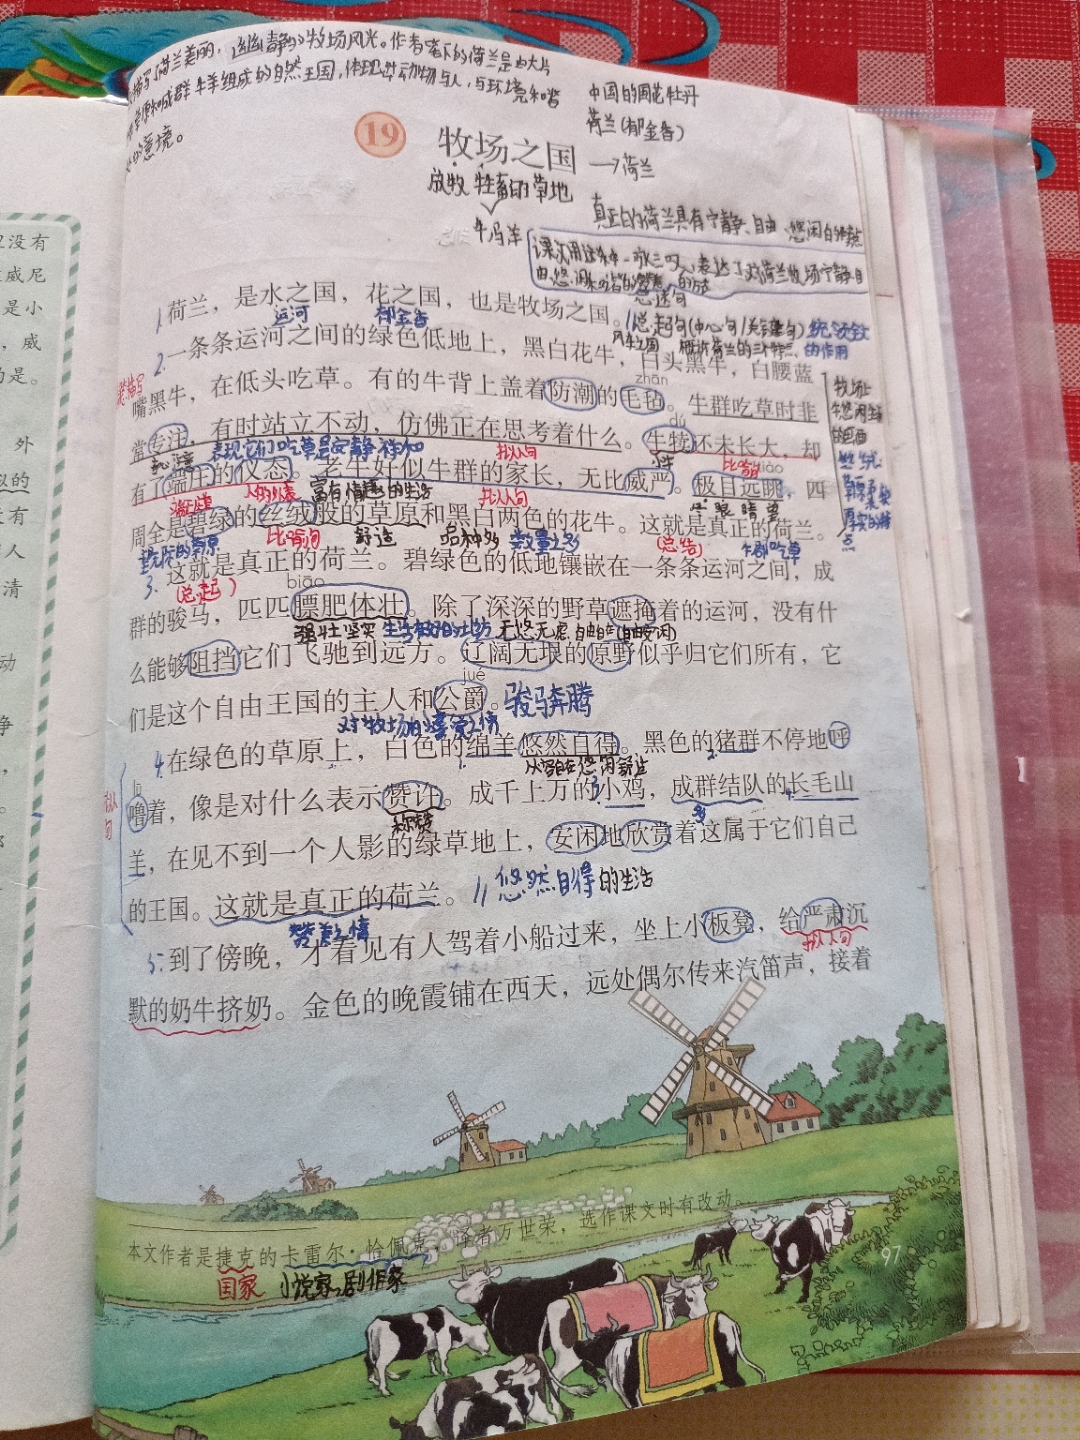 描写了荷兰美丽，幽静的牧场风光。作者笔下的荷兰是由大片
草原和成群牛羊组成的自然王国，体现出动物与人，与环境和谐
的意境。
中国的国花牡丹
荷兰(郁金香)
19 牧场之国 →荷兰
放牧 牲畜的草地
牛冯羊
真正的荷兰具有宁静、自由、悠闲的特点
总述句
1.荷兰，是水之国，花之国，也是牧场之国。
运河 郁金香 总起句(中心句/关键句)
2.一条条运河之间的绿色低地上，黑白花牛，白头黑牛，白腰蓝
zhān
嘴黑牛，在低头吃草。有的牛背上盖着防潮的毛毡。牛群吃草时非
常专注，有时站立不动，仿佛正在思考着什么。牛犊还未长大，却
表现它们吃草是安静 祥和 拟人句 小牛 比喻句
有了端庄的仪态。老牛好似牛群的家长，无比威严。极目远眺，四
富有情趣的生活 拟人句
周全是碧绿的丝绒般的草原和黑白两色的花牛。这就是真正的荷兰。
比喻句 舒适 数量之多 (总结) 牛群吃草
3.这就是真正的荷兰。碧绿色的低地镶嵌在一条条运河之间，成
(总起) biāo
群的骏马，匹匹膘肥体壮。除了深深的野草遮掩着的运河，没有什
强壮坚实 无忧无虑 自由自在(自由悠闲)
么能够阻挡它们飞驰到远方。辽阔无垠的原野似乎归它们所有，它
jué
们是这个自由王国的主人和公爵。骏马奔腾
对牧场的喜爱之情
4.在绿色的草原上，白色的绵羊悠然自得。黑色的猪群不停地呼
从容自在 悠闲舒适
lū
噜着，像是对什么表示赞许。成千上万的小鸡，成群结队的长毛山
称赞 多
羊，在见不到一个人影的绿草地上，安闲地欣赏着这属于它们自己
的王国。这就是真正的荷兰。// 悠然自得的生活
赞美之情
5.到了傍晚，才看见有人驾着小船过来，坐上小板凳，给严肃沉
拟人句
默的奶牛挤奶。金色的晚霞铺在西天，远处偶尔传来汽笛声，接着
本文作者是捷克的卡雷尔·恰佩克，译者万世荣，选作课文时有改动。
国家 小说家,剧作家
97